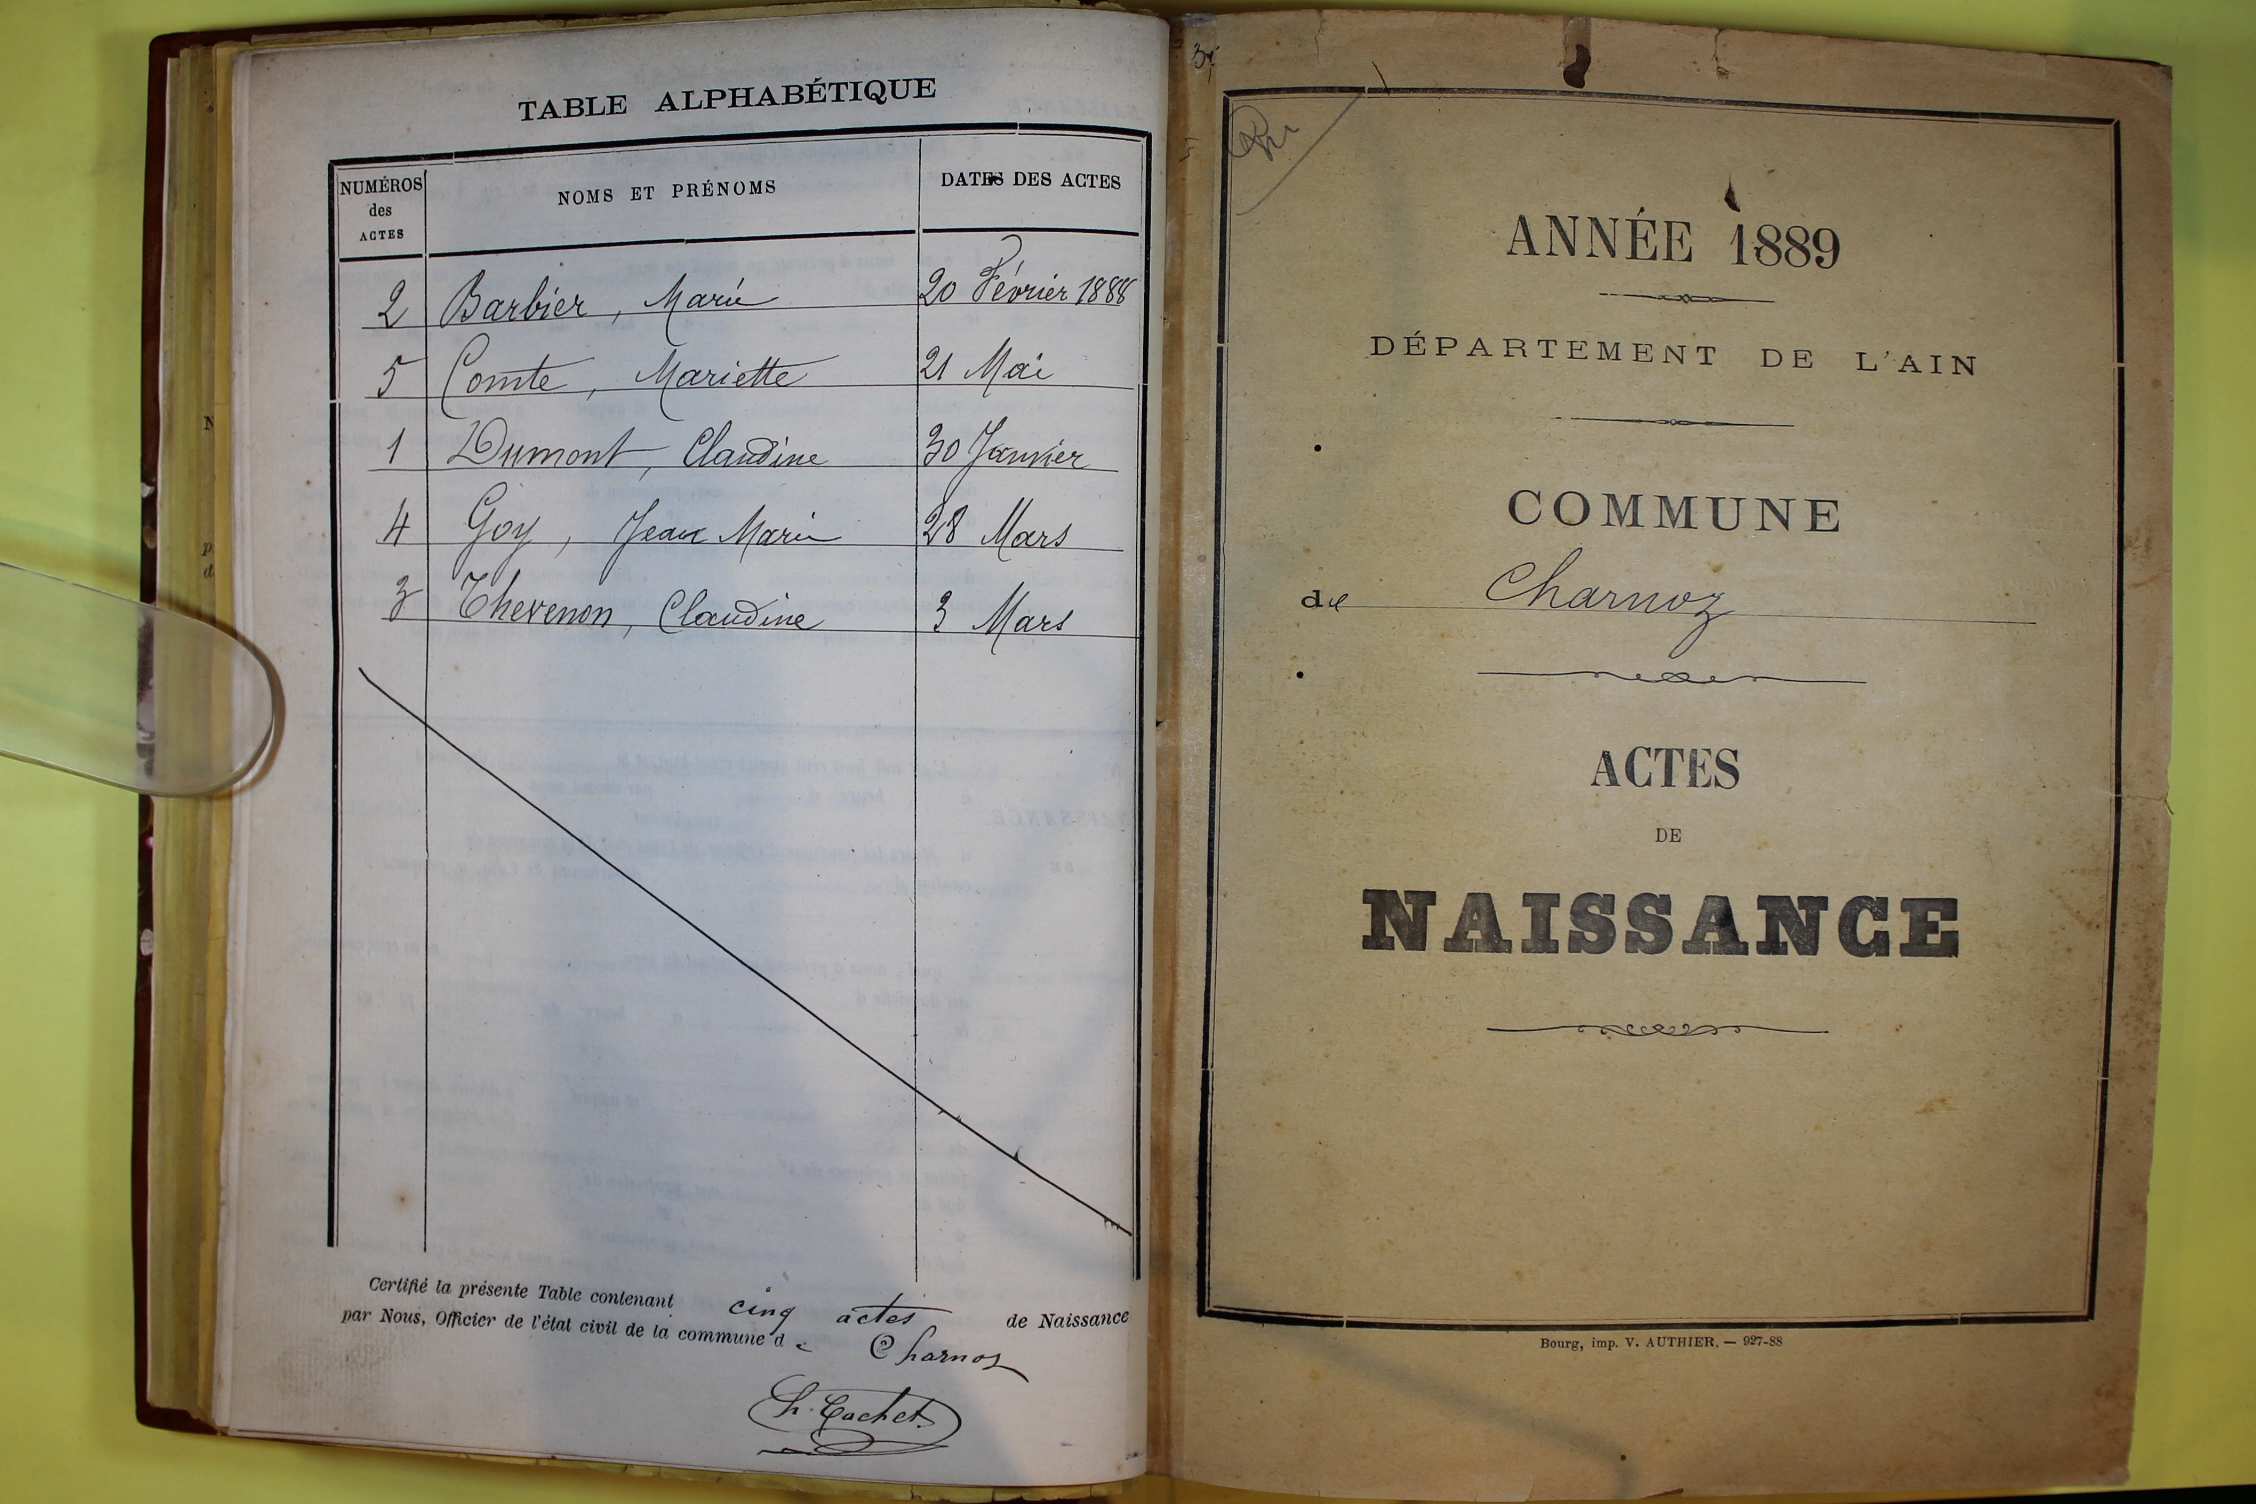 TABLE ALPHABÉTIQUE
NUMÉROS des ACTES NOMS ET PRÉNOMS DATES DES ACTES
2 Barbier, Marie 20 Février 1888
5 Comte, Mariette 21 Mai
1 Dumont, Claudine 30 Janvier
4 Goy, Jean Marie 28 Mars
3 Thevenon, Claudine 3 Mars
Certifié la présente Table contenant cinq actes de Naissance
par Nous, Officier de l'état civil de la commune de Charnoz
Cachet
ANNÉE 1889
DÉPARTEMENT DE L'AIN
COMMUNE
de Charnoz
ACTES
DE
NAISSANCE
Bourg, imp. V. AUTHIER. — 927-88